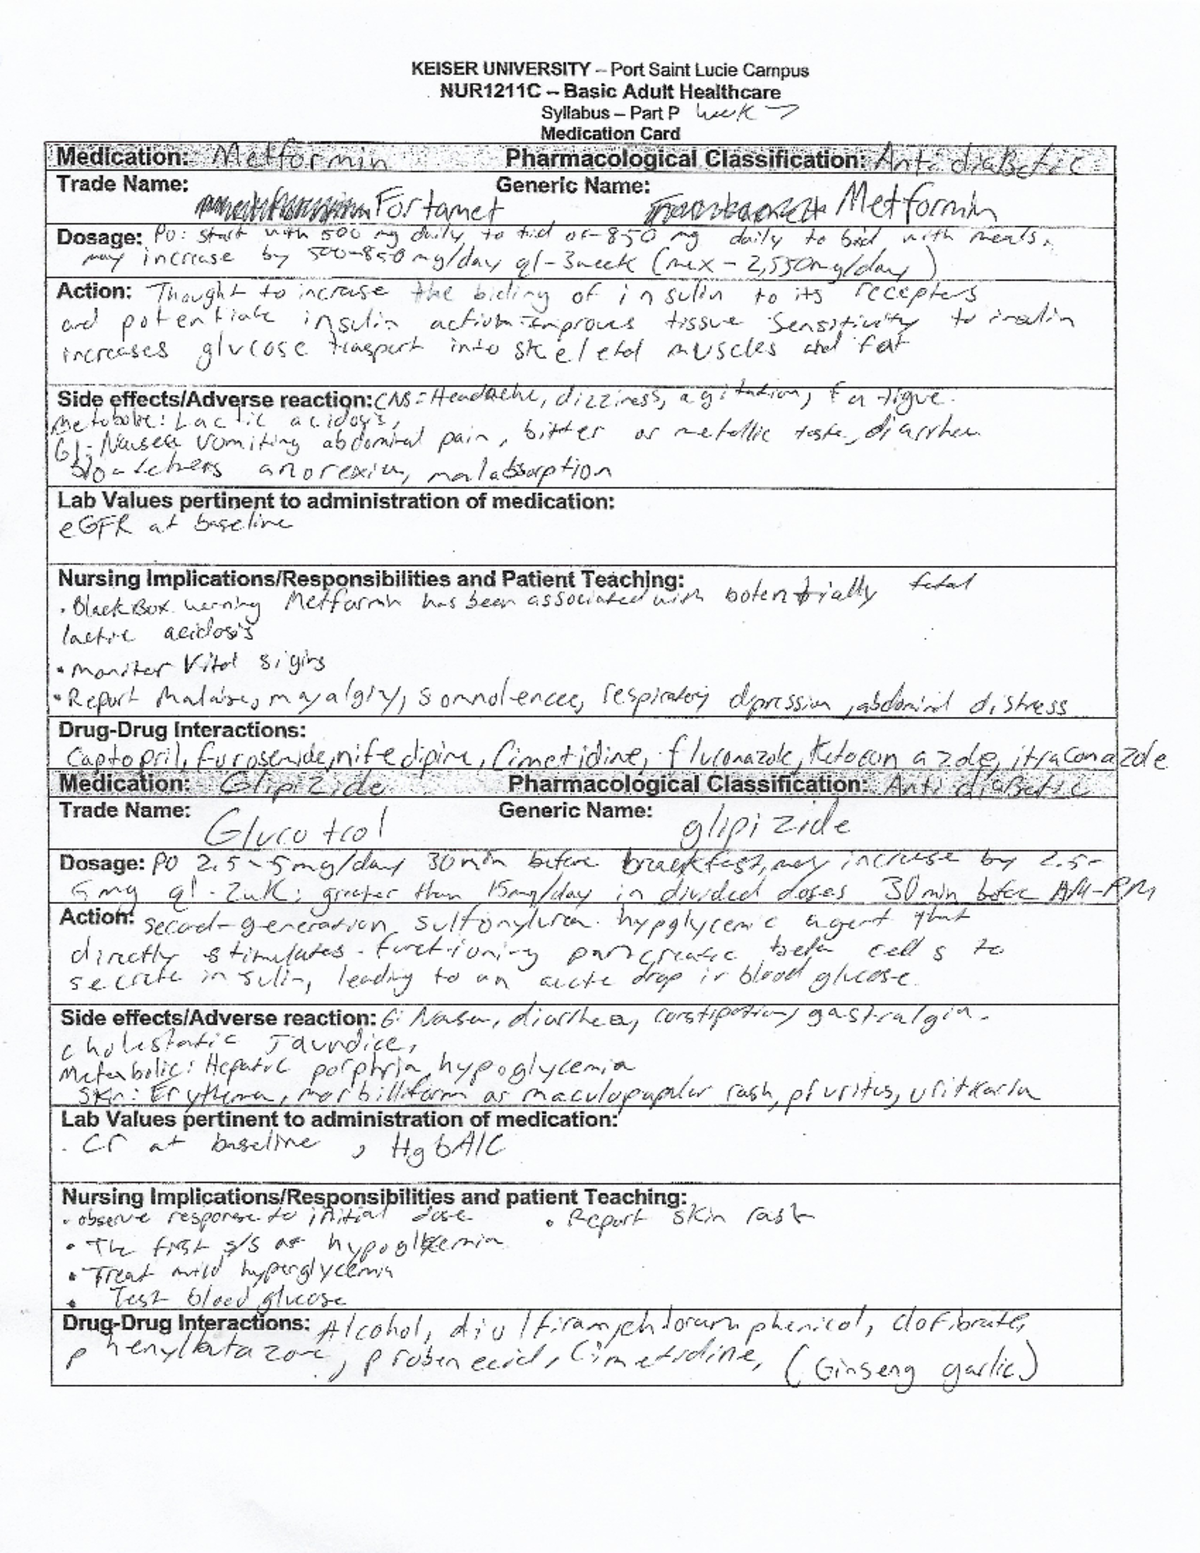 KEISER UNIVERSITY – Port Saint Lucie Campus
NUR1211C – Basic Adult Healthcare
Syllabus – Part P week
Medication Card
Medication: Metformin Pharmacological Classification: Antidiabetic
Trade Name: Fortamet Generic Name: Metformin
Dosage: PO: start with 500 mg daily to tid or 850 mg daily to bid, with meals,
may increase by 500-850mg/day q1-3week (max - 2,550mg/day)
Action: Thought to increase the biding of insulin to its receptors
and potentiate insulin action-improves tissue sensitivity to insulin
increases glucose transport into skeletal muscles and fat
Side effects/Adverse reaction: CNS: Headache, dizziness, agitation, fatigue.
Metabolic: Lactic acidosis,
GI: Nausea vomiting abdominal pain, bitter or metallic taste, diarrhea
anorexia, malabsorption
Lab Values pertinent to administration of medication:
eGFR at baseline
Nursing Implications/Responsibilities and Patient Teaching:
• Black Box warning Metformin has been associated with potentially fatal
lactic acidosis
• monitor vital signs
• Report malaise, myalgia, somnolence, respiratory depression, abdominal distress
Drug-Drug Interactions:
Captopril, furosemide, nifedipine, Cimetidine, fluconazole, Ketoconazole, itraconazole
Medication: Glipizide Pharmacological Classification: Antidiabetic
Trade Name: Glucotrol Generic Name: glipizide
Dosage: PO 2.5-5mg/day 30min before breakfast, may increase by 2.5-
5mg q1-2wk; greater than 15mg/day in divided doses 30min before AM-PM
Action: second-generation sulfonylurea hypglycemic agent that
directly stimulates functioning pancreatic beta cells to
secrete insulin, leading to an acute drop in blood glucose.
Side effects/Adverse reaction: GI: Nausea, diarrhea, constipation, gastralgia,
cholestatic Jaundice,
Metabolic: Hepatic porphria, hypoglycemia
Skin: Erythema, morbilliform or maculopapular rash, pruritus, uriticaria
Lab Values pertinent to administration of medication:
. Cr at baseline, HgbA1C
Nursing Implications/Responsibilities and patient Teaching:
• observe response to initial dose • Report skin rash
• The first s/s of hypoglycemia
• Treat mild hyperglycemia
• Test blood glucose
Drug-Drug Interactions: Alcohol, disulfiram, chloramphenicol, clofibrate,
phenylbutazone, probenecid, Cimetidine, (Ginseng garlic)